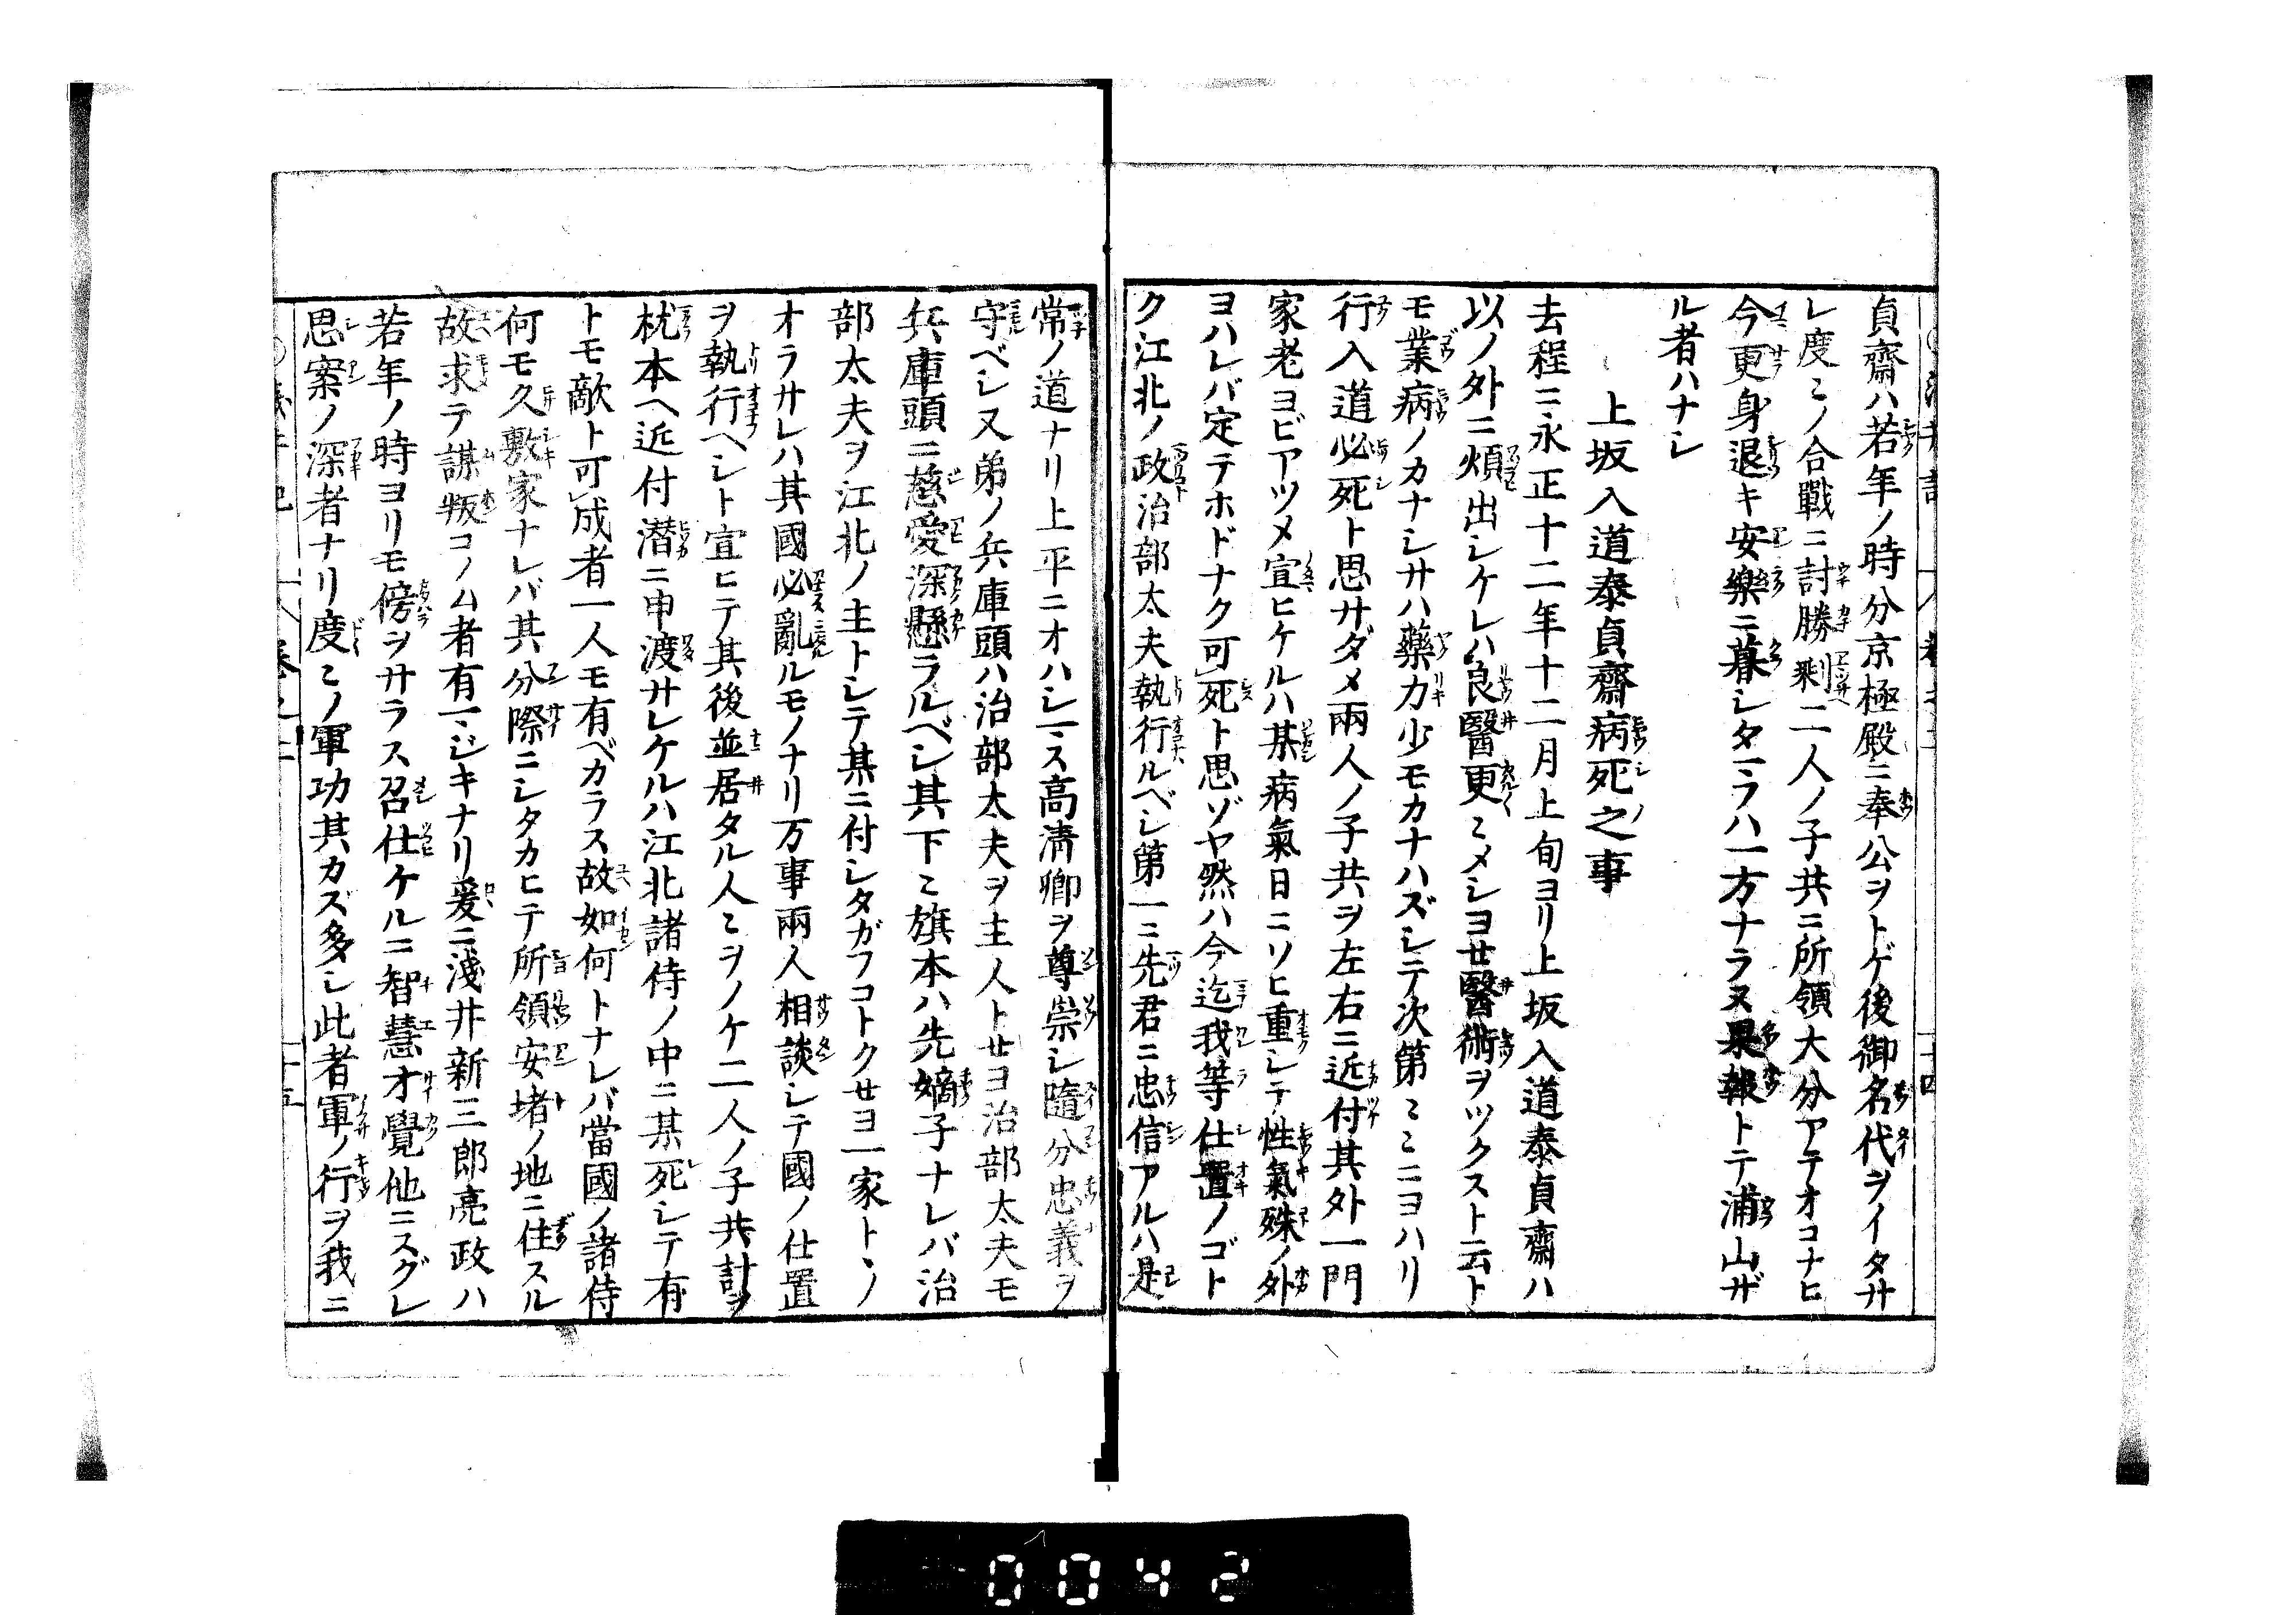 貞齋ハ若年ノ時分京極殿ニ奉公ヲトゲ後御名代ヲイタサ
レ度〻ノ合戰ニ討勝剰二人ノ子共ニ所領大分アテオコナヒ
今更身退キ安樂ニ暮シタマフハ一方ナラヌ果報トテ浦山ザ
ル者ハナシ
上坂入道泰貞齋病死之事
去程ニ永正十二年十二月上旬ヨリ上坂入道泰貞齋ハ
以ノ外ニ煩出シケレハ良醫更〻メシヨせ醫術ヲツクスト云ト
モ業病ノカナシサハ藥力少モカナハズシテ次第〻〻ニヨハリ
行入道必死ト思サダメ兩人ノ子共ヲ左右ニ近付其外一門
家老ヨビアツメ宣ヒケルハ某病氣日ニソヒ重シテ性氣殊ノ外
ヨハレバ定テホドナク可死ト思ゾヤ然ハ今迄我等仕置ノゴト
ク江北ノ政治部太夫執行ルベシ第一ニ先君ニ忠信アルハ是
常ノ道ナリ上平ニオハシマス高清卿ヲ尊崇シ隨分忠義ヲ
守ベシ又弟ノ兵庫頭ハ治部太夫ヲ主人トせヨ治部太夫モ
兵庫頭ニ慈愛深懸ラルベシ其下〻旗本ハ先嫡子ナレバ治
部太夫ヲ江北ノ主トシテ某ニ付シタガフコトクせヨ一家トヽノ
オラサレハ其國必亂ルモノナリ万事兩人相談シテ國ノ仕置
ヲ執行ヘシト宣ヒテ其後並居タル人〻ヲノケ二人ノ子共計ヲ
枕本ヘ近付潜ニ申渡サレケルハ江北諸侍ノ中ニ某死シテ有
トモ敵ト可成者一人モ有ベカラス故如何トナレバ當國ノ諸侍
何モ久敷家ナレバ其分際ニシタカヒテ所領安堵ノ地ニ住スル
故求テ謀叛コノム者有マジキナリ爰ニ淺井新三郎亮政ハ
若年ノ時ヨリモ傍ヲサラス召仕ケルニ智慧才覺他ニスグレ
思案ノ深者ナリ度〻ノ軍功其カズ多シ此者軍ノ行ヲ我ニ
0042